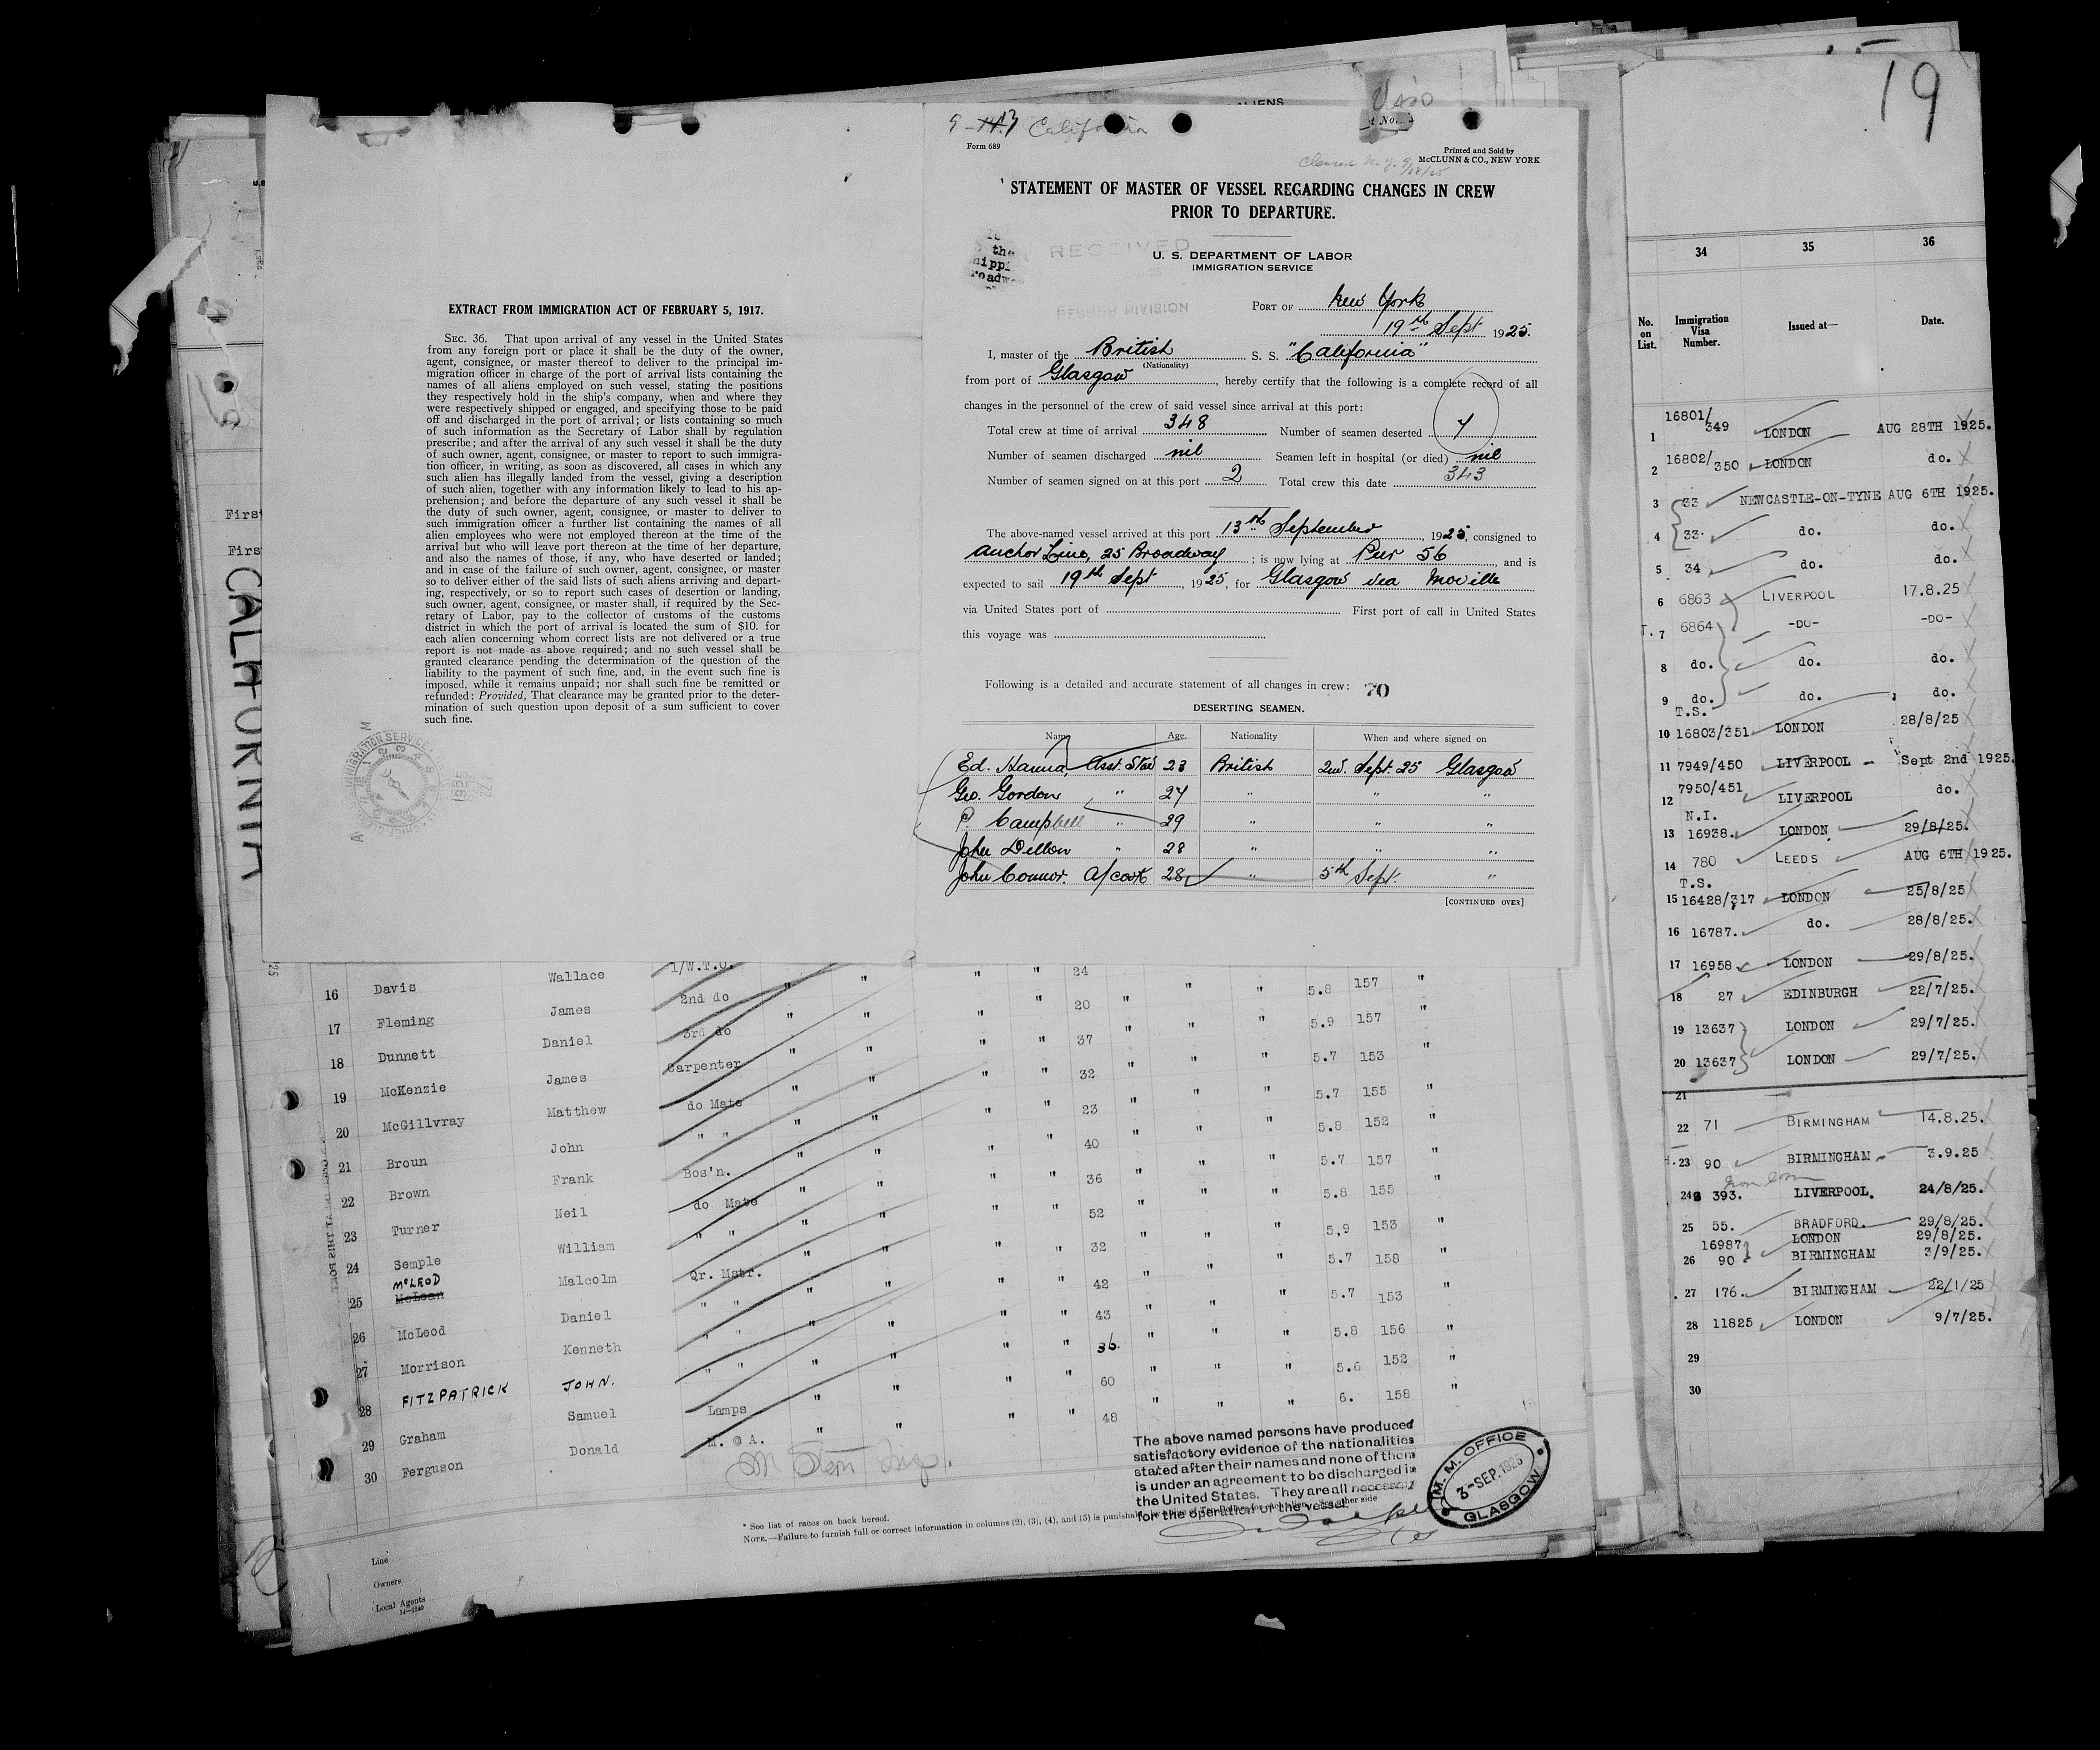 19
ALIENS
EXTRACT FROM IMMIGRATION ACT OF FEBRUARY 5, 1917.
SEC. 36. That upon arrival of any vessel in the United States
from any foreign port or place it shall be the duty of the owner,
agent, consignee, or master thereof to deliver to the principal im-
migration officer in charge of the port of arrival lists containing the
names of all aliens employed on such vessel, stating the positions
they respectively hold in the ship's company, when and where they
were respectively shipped or engaged, and specifying those to be paid
off and discharged in the port of arrival; or lists containing so much
of such information as the Secretary of Labor shall by regulation
prescribe; and after the arrival of any such vessel it shall be the duty
of such owner, agent, consignee, or master to report to such immigra-
tion officer, in writing, as soon as discovered, all cases in which any
such alien has illegally landed from the vessel, giving a description
of such alien, together with any information likely to lead to his ap-
prehension; and before the departure of any such vessel it shall be
the duty of such owner, agent, consignee, or master to deliver to
such immigration officer a further list containing the names of all
alien employees who were not employed thereon at the time of the
arrival but who will leave port thereon at the time of her departure,
and also the names of those, if any, who have deserted or landed;
and in case of the failure of such owner, agent, consignee, or master
so to deliver either of the said lists of such aliens arriving and depart-
ing, respectively, or so to report such cases of desertion or landing,
such owner, agent, consignee, or master shall, if required by the Sec-
retary of Labor, pay to the collector of customs of the customs
district in which the port of arrival is located the sum of $10. for
each alien concerning whom correct lists are not delivered or a true
report is not made as above required; and no such vessel shall be
granted clearance pending the determination of the question of the
liability to the payment of such fine, and, in the event such fine is
imposed, while it remains unpaid; nor shall such fine be remitted or
refunded: Provided, That clearance may be granted prior to the deter-
mination of such question upon deposit of a sum sufficient to cover
such fine.
CALIFORNIA
California
Form 689
Printed and Sold by
McCLUNN & CO., NEW YORK
STATEMENT OF MASTER OF VESSEL REGARDING CHANGES IN CREW
PRIOR TO DEPARTURE.
RECEIVED
RECORD DIVISION
U. S. DEPARTMENT OF LABOR
IMMIGRATION SERVICE
PORT OF New York
19th Sept 1925.
I, master of the British S. S. "California"
(Nationality)
from port of Glasgow, hereby certify that the following is a complete record of all
changes in the personnel of the crew of said vessel since arrival at this port:
Total crew at time of arrival 348 Number of seamen deserted 7
Number of seamen discharged nil Seamen left in hospital (or died) nil
Number of seamen signed on at this port 2 Total crew this date 343
The above-named vessel arrived at this port 13th September, 1925, consigned to
Anchor Line, 25 Broadway; is now lying at Pier 56, and is
expected to sail 19th Sept, 1925, for Glasgow via Moville
via United States port of First port of call in United States
this voyage was
Following is a detailed and accurate statement of all changes in crew: 70
DESERTING SEAMEN.
Name Age. Nationality When and where signed on
Ed. Hanna, Asst. Stwd 23 British 2nd. Sept. 25 Glasgow
Geo. Gordon " 27 " " "
P. Campbell " 29 " " "
John Dillon " 28 " " "
John Connor. A/cook 28 " 5th Sept. "
[CONTINUED OVER]
16 Davis Wallace 1/W.T.O. " " 24 " " 5.8 157 "
17 Fleming James 2nd do " " " 20 " " " 5.9 157 "
18 Dunnett Daniel 3rd do " " " " 37 " " " 5.7 153 "
19 McKenzie James Carpenter " " " " 32 " " " 5.7 155 "
20 McGillvray Matthew do Mate " " " " 23 " " " 5.8 152 "
21 Broun John " " " " " " 40 " " " 5.7 157 "
22 Brown Frank Bos'n. " " " " 36 " " " 5.8 155 "
23 Turner Neil do Mate " " " " 52 " " " 5,9 153 "
24 Semple William " " " " " " 32 " " " 5.7 158 "
McLEOD
25 McLean Malcolm Qr. Mstr. " " " " 42 " " " 5.7 153 "
26 McLeod Daniel " " " " " " 43 " " " 5.8 156 "
27 Morrison Kenneth " " " " " " 36. " " " 5.6 152 "
28 FITZPATRICK JOHN. " " " " " " 60 " " " 6. 158 "
29 Graham Samuel Lamps " " " " 48
30 Ferguson Donald M. @ A.
The above named persons have produced
satisfactory evidence of the nationalities
stated after their names and none of them
is under an agreement to be discharged in
the United States. They are all necessary
for the operation of the vessel.
M. M. OFFICE
3-SEP. 1925
GLASGOW
* See list of races on back hereof.
NOTE.—Failure to furnish full or correct information in columns (2), (3), (4), and (5) is punishable
Line
Owners
Local Agents
14-1240
34 35 36
No. on List. Immigration Visa Number. Issued at— Date.
1 16801/349 LONDON AUG 28TH 1925.
2 16802/350 LONDON do.
3 33 NEWCASTLE-ON-TYNE AUG 6TH 1925.
4 33. do. do.
5 34 do. do.
6 6863 LIVERPOOL 17.8.25
7 6864 -DO- -DO-
8 do. do. do.
9 do. do. do.
T.S.
10 16803/351 LONDON 28/8/25
11 7949/450 LIVERPOOL - Sept 2nd 1925.
12 7950/451 LIVERPOOL do.
N.I.
13 16938. LONDON 29/8/25.
14 780 LEEDS AUG 6TH 1925.
T.S.
15 16428/317 LONDON 25/8/25
16 16787. do. 28/8/25.
17 16958 LONDON 29/8/25.
18 27 EDINBURGH 22/7/25.
19 13637 LONDON 29/7/25.
20 13637 LONDON 29/7/25.
21
22 71 BIRMINGHAM 14.8.25.
23 90 BIRMINGHAM. 3.9.25
24 393. LIVERPOOL. 24/8/25.
25 55. BRADFORD. 29/8/25.
16987 LONDON 29/8/25.
26 90 BIRMINGHAM 3/9/25.
27 176. BIRMINGHAM 22/1/25
28 11825 LONDON 9/7/25.
29
30